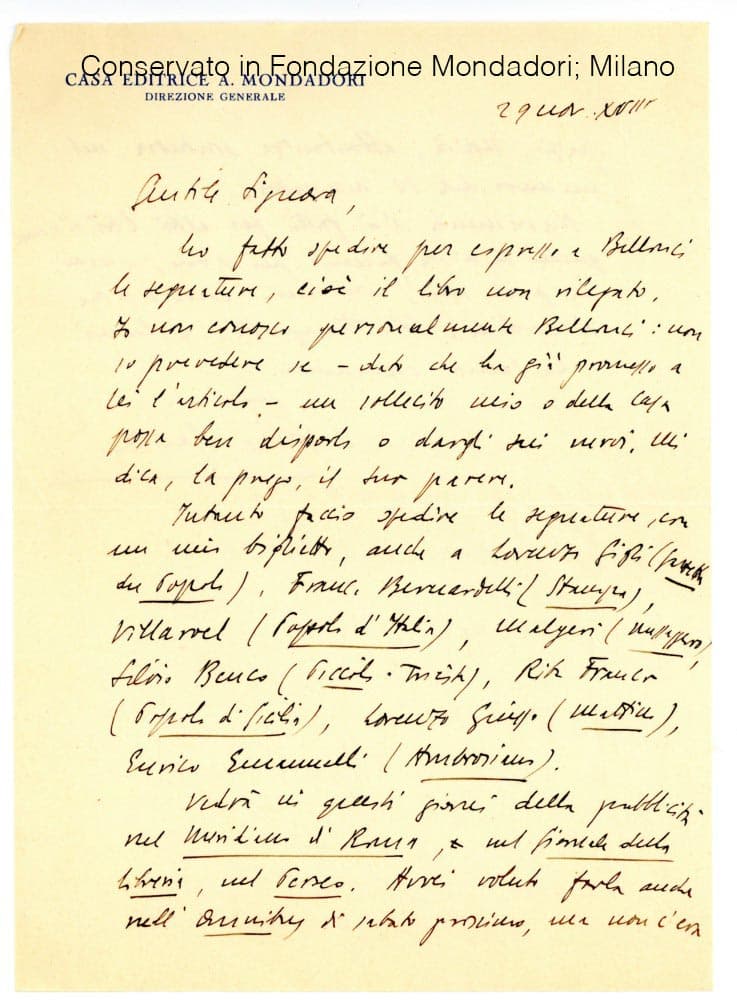 Conservato in Fondazione Mondadori; Milano
CASA EDITRICE A. MONDADORI
DIREZIONE GENERALE
29 nov. XVIII
Gentile Signora,
ho fatto spedire per espresso a Bellonci
le segnature, cioè il libro non rilegato.
Io non conosco personalmente Bellonci: non
so prevedere se – dato che ha già promesso a
lei l'articolo – un sollecito mio o della Casa
possa ben disporlo o dargli sui nervi. Mi
dica, la prego, il suo parere.
Intanto faccio spedire le segnature, con
un mio biglietto, anche a Lorenzo Gigli (Gazzetta
del Popolo), Franc. Bernardelli (Stampa),
Villaroel (Popolo d'Italia), Malgeri (Messaggero),
Silvio Benco (Piccolo - Trieste), Rita Franco
(Popolo di Sicilia), Lorenzo Giusso (Mattino),
Enrico Emanuelli (Ambrosiano).
Vedrà in questi giorni della pubblicità
nel Meridiano di Roma, nel Giornale della
libreria, nel Perseo. Avrei voluto farla anche
nell' Omnibus di sabato prossimo, ma non c'era